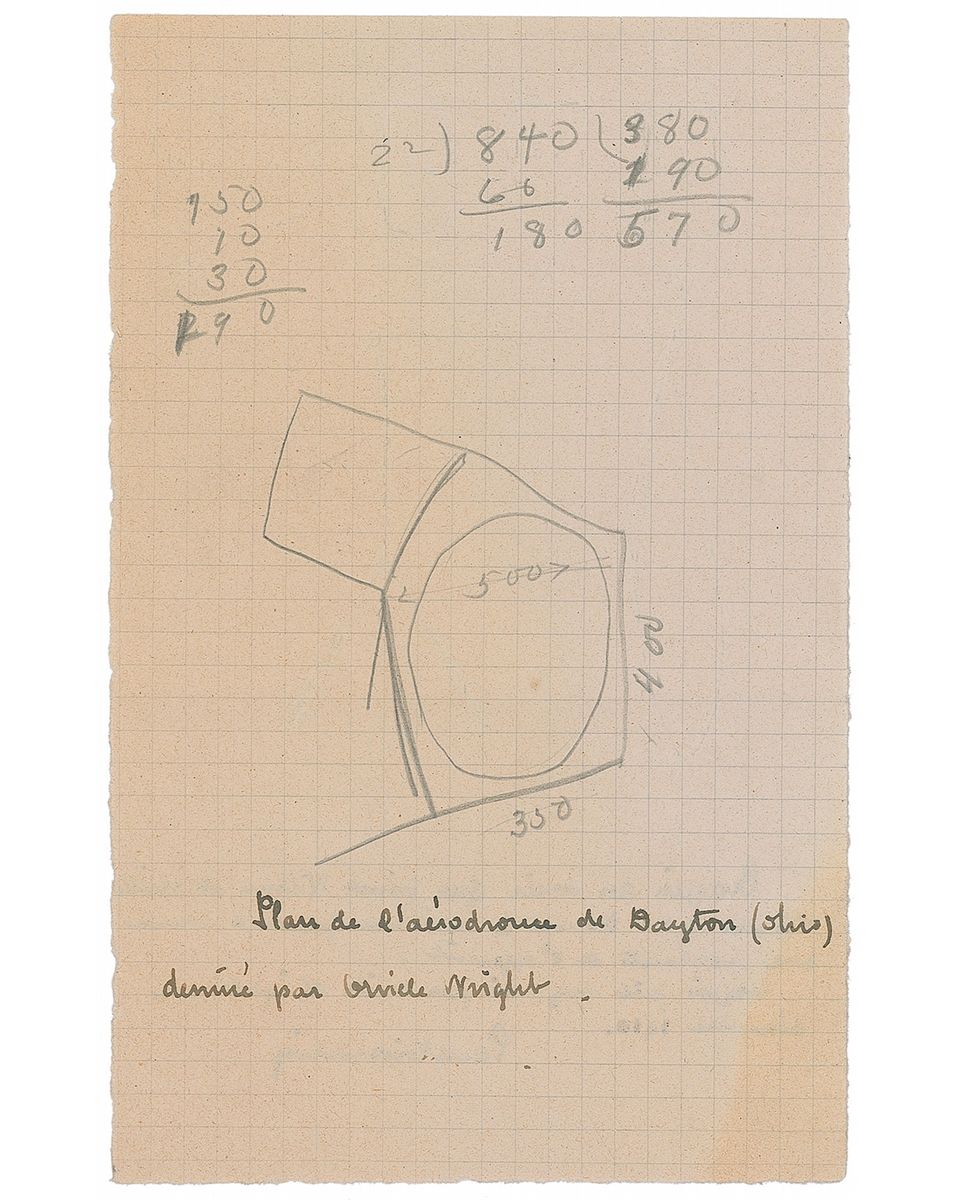 22) 840 380
66 190
180 570
150
10
30
190
500
400
350
Plan de l'aérodrome de Dayton (Ohio)
dessiné par Orville Wright.